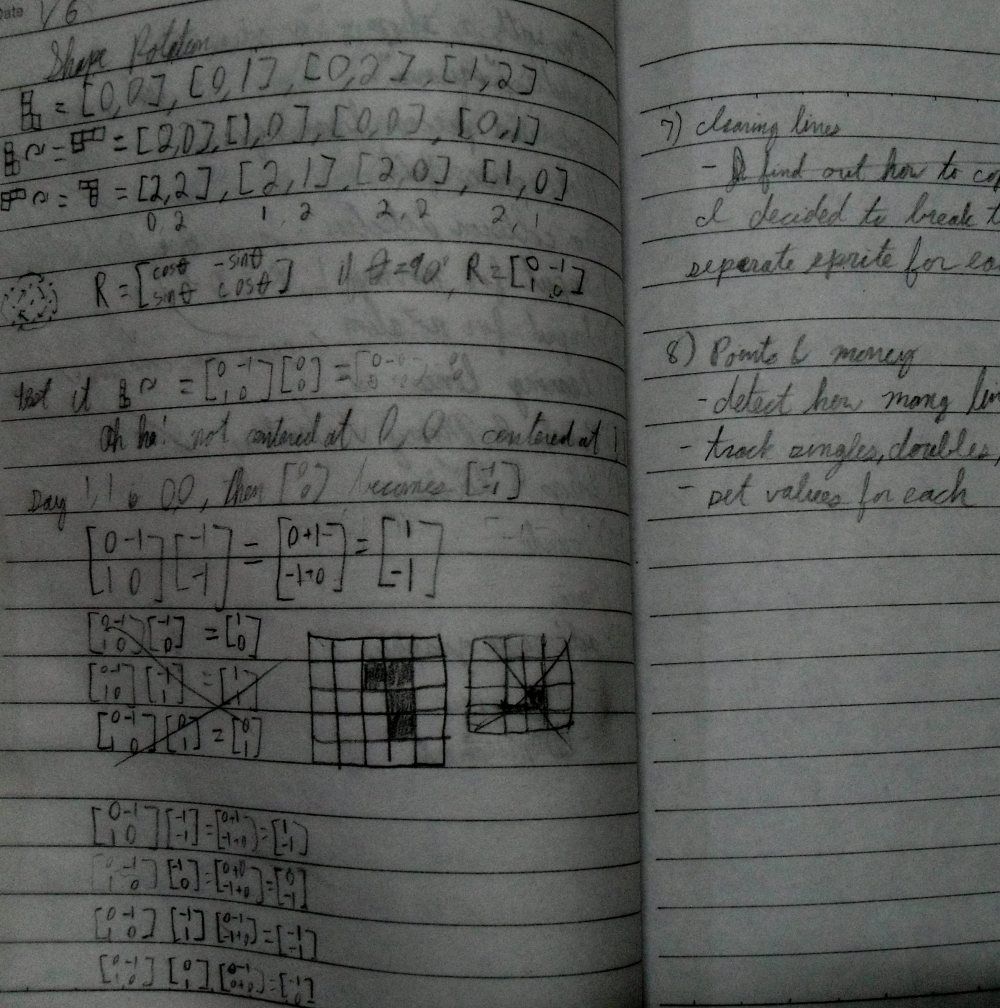 Date 1/6
Shape Rotation
= [0,0], [0,1], [0,2], [1,2]
~ = = [2,0], [1,0], [0,0], [0,1]
~ = = [2,2], [2,1], [2,0], [1,0]
0,2 1,2 2,2 2,1
R = [cosθ -sinθ sinθ cosθ] if θ=90°, R = [0 -1 1 0]
test it ~ = [0 -1 1 0] [0 0] =
Oh ha! not centered at 0,0 centered at 1
Say 1,1 is 0,0, then [0 0] becomes [-1 -1]
[0 -1 1 0] [-1 -1] = [0+1- -1+0] = [1 -1]
[0 -1 1 0] [-1 0] = [1 0]
[0 -1 1 0] [-1 1] = [1 1]
[0 -1 1 0] [0 1] = [0 1]
[0 -1 1 0] [-1 -1] = [0+1 -1+0] = [1 -1]
[0 -1 1 0] [-1 0] = [0+0 -1+0] = [0 -1]
[0 -1 1 0] [-1 1] [0-1 -1+0] = [-1 -1]
[0 -1 1 0] [0 1] [0-1 0+0] = [-1 0]
7) clearing lines
- find out how to
I decided to break
seperate sprite for
8) Points & money
- detect how many
- track singles, doubles,
- set values for each